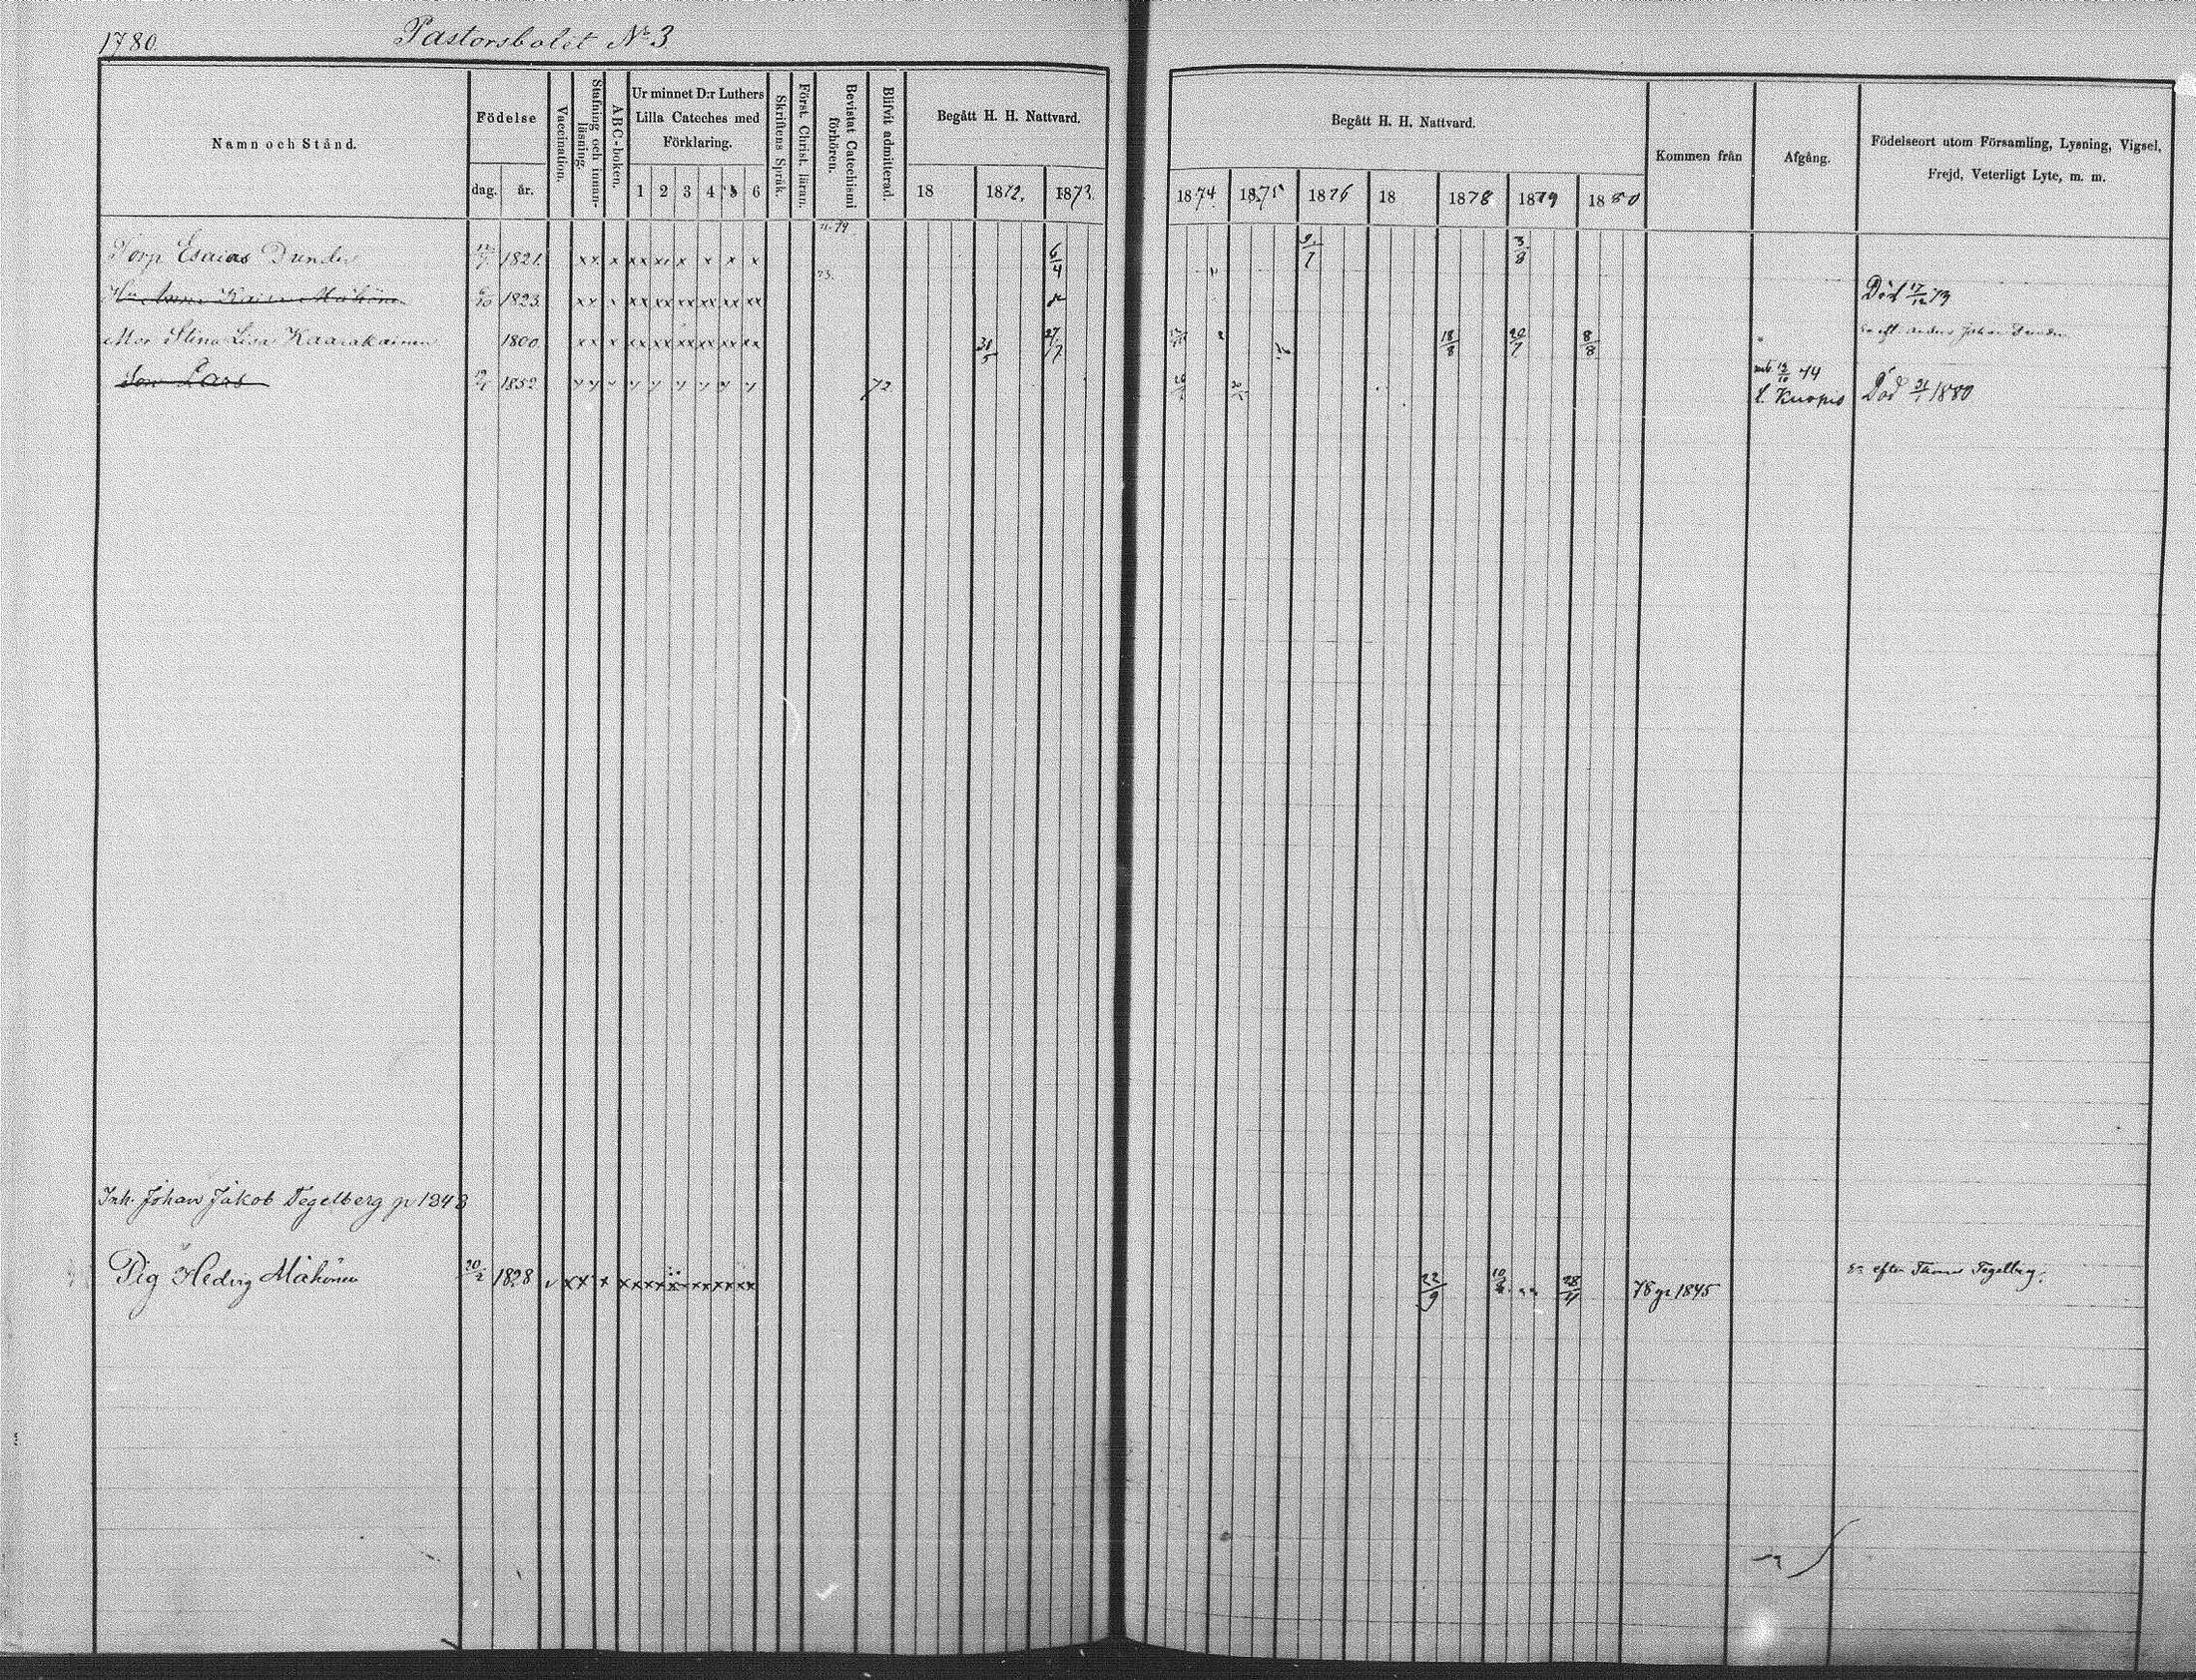 1780.
Pastorsbolet No 3
Namn och Stånd.
Födelse
dag. år.
Vaccination.
Stafning och innan-läsning.
ABC-boken.
Ur minnet D:r Luthers
Lilla Cateches med
Förklaring.
1 2 3 4 5 6
Skriftens Språk.
Först. Christ. läran.
Bevistat Catechismi förhören.
Blifvit admitterad.
Begått H. H. Nattvard.
18 1872. 1873.
Begått H. H. Nattvard.
1874. 1875 1876 18 1878 1879 1880
Kommen från
Afgång.
Födelseort utom Församling, Lysning, Vigsel,
Frejd, Veterligt Lyte, m. m.
Torp Esaias Dunder 1821. xx x xx xx x x x x 6/4 9/7 3/8
73.
1823. xx x xx xx xx xx xx xx Död 17/12 73
Mor Stina Lisa Kaarakainen 1800. xx x xx xx xx xx xx xx 31/5 27/7 18/8 20/7 8/8
Son Lars 1852 72 t. Kuopio Död 31/1 1880
Inh. Johan Jakob Tegelberg p 1843
Pig Hedvig Mähönen 20/2 1828 v xx x xx xx xx xx xx xx 22/9 28/4 78 p 1845 Ea efter Thomas Tegelberg.